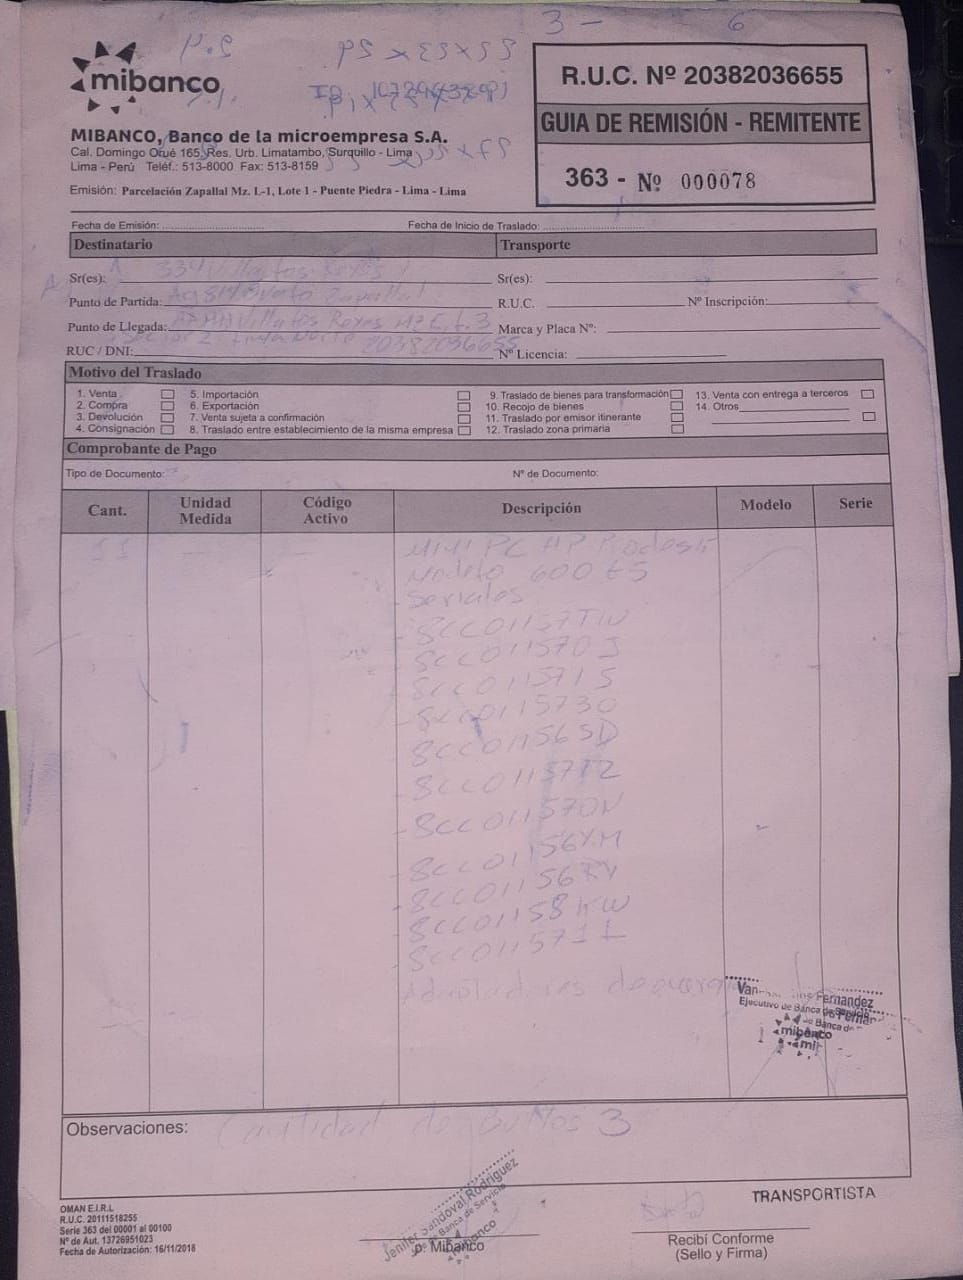 3 - 6
mibanco
R.U.C. Nº 20382036655
GUIA DE REMISIÓN - REMITENTE
363 - Nº 000078
MIBANCO, Banco de la microempresa S.A.
Cal. Domingo Orué 165, Res. Urb. Limatambo, Surquillo - Lima
Lima - Perú Teléf.: 513-8000 Fax: 513-8159
Emisión: Parcelación Zapallal Mz. L-1, Lote 1 - Puente Piedra - Lima - Lima
Fecha de Emisión: Fecha de Inicio de Traslado:
Destinatario Transporte
Sr(es): 334 Villa los Reyes Sr(es):
Punto de Partida: Zapallal R.U.C. Nº Inscripción:
Punto de Llegada: AAHH Villa los Reyes MZ E, Lt. 3 Marca y Placa Nº:
RUC / DNI: 20382036655 Nº Licencia:
Motivo del Traslado
1. Venta 5. Importación 9. Traslado de bienes para transformación 13. Venta con entrega a terceros
2. Compra 6. Exportación 10. Recojo de bienes 14. Otros
3. Devolución 7. Venta sujeta a confirmación 11. Traslado por emisor itinerante
4. Consignación 8. Traslado entre establecimiento de la misma empresa 12. Traslado zona primaria
Comprobante de Pago
Tipo de Documento: Nº de Documento:
Cant. Unidad Medida Código Activo Descripción Modelo Serie
11 MINI PC HP Prodesk
Modelo 600 G5
Seriales
- 8CC01157TW
- 8CC011570J
- 8CC011571S
- 8CC0115730
- 8CC01156SD
- 8CC01157TZ
- 8CC011570N
- 8CC01156YM
- 8CC01156RV
- 8CC01158KW
- 8CC011571L
Adaptadores de
Fernandez
Ejecutivo de Banca de Servicio
mibanco
Observaciones: Cantidad de Bultos 3
OMAN E.I.R.L
R.U.C. 20111518255
Serie 363 del 00001 al 00100
Nº de Aut. 13726951023
Fecha de Autorización: 16/11/2018
Jenifer Sandoval Rodriguez
de Banca de Servicio
mibanco
p. Mibanco
TRANSPORTISTA
Recibí Conforme
(Sello y Firma)